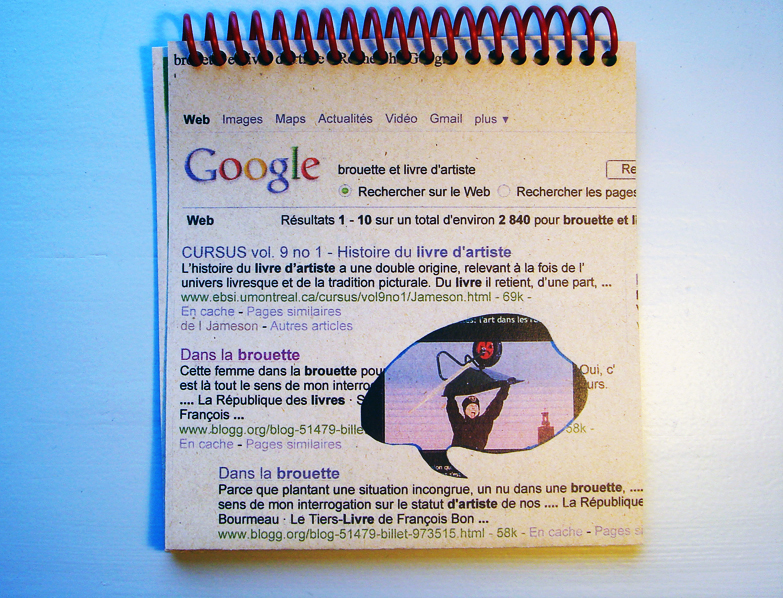 Web Images Maps Actualités Vidéo Gmail plus ▼
Google
brouette et livre d'artiste
Re
Rechercher sur le Web Rechercher les pages
Web Résultats 1 - 10 sur un total d'environ 2 840 pour brouette et li
CURSUS vol. 9 no 1 - Histoire du livre d'artiste
L'histoire du livre d'artiste a une double origine, relevant à la fois de l'
univers livresque et de la tradition picturale. Du livre il retient, d'une part, ...
www.ebsi.umontreal.ca/cursus/vol9no1/Jameson.html - 69k -
En cache - Pages similaires
de I Jameson - Autres articles
: l'art dans les r
Dans la brouette
Cette femme dans la brouette pou Oui, c'
est là tout le sens de mon interro urs.
.... La République des livres · S
François ...
www.blogg.org/blog-51479-bille 58k -
En cache - Pages similaires
Dans la brouette
Parce que plantant une situation incongrue, un nu dans une brouette, ....
sens de mon interrogation sur le statut d'artiste de nos .... La République
Bourmeau · Le Tiers-Livre de François Bon ...
www.blogg.org/blog-51479-billet-973515.html - 58k - En cache - Pages s